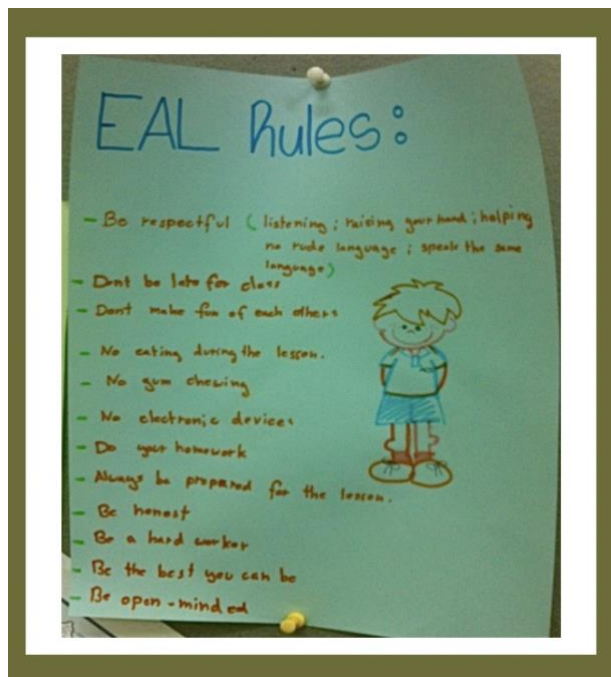 EAL Rules:
- Be respectful ( listening ; raising your hand ; helping
no rude language ; speak the same
language)
- Dont be late for class
- Dont make fun of each others
- No eating during the lesson.
- No gum chewing
- No electronic devices
- Do your homework
- Always be prepared for the lesson.
- Be honest
- Be a hard worker
- Be the best you can be
- Be open-minded